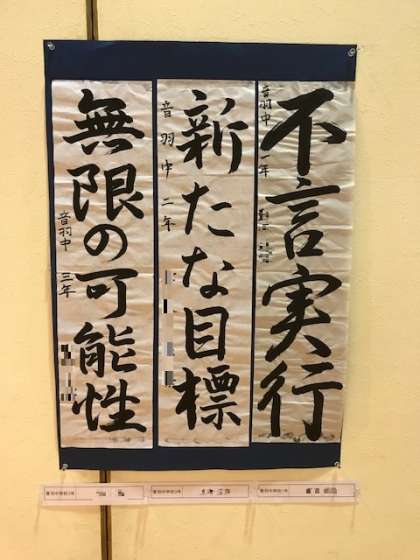 不言実行
音羽中 一年
新たな目標
音羽中 二年
無限の可能性
音羽中 三年